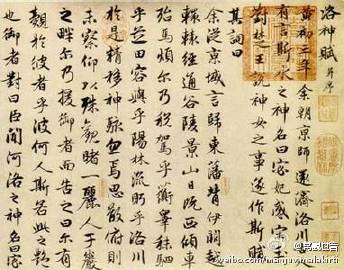 洛神賦 并序
黃初三年余朝京師還濟洛川
有言斯水之神名曰宓妃感宋
對楚王說神女之事遂作斯賦
其詞曰
余從京域言歸東藩背伊闕越
轘轅經通谷陵景山日既西傾車
殆馬煩爾乃稅駕乎蘅皋秣駟
乎芝田容與乎陽林流眄乎洛川
於是精移神駭忽焉思散俯則
未察仰以殊觀睹一麗人于巖
之畔爾乃援御者而告之曰爾有
覿於彼者乎彼何人斯若此之豔
也御者對曰臣聞河洛之神名曰宓